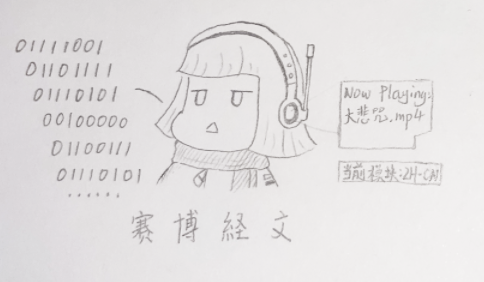 01111001
01101111
01110101
00100000
01100111
01110101
......
Now Playing:
大悲咒.mp4
当前模块:ZH-CN
赛博経文